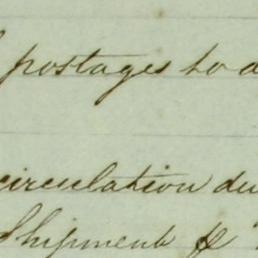 postages to d
circulation du
Shipment &